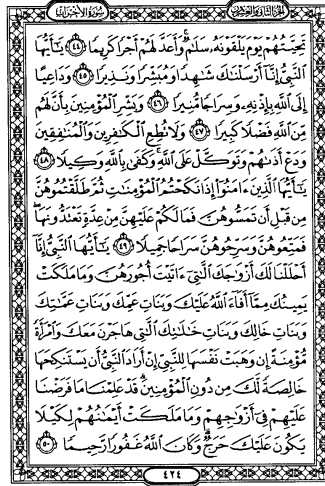 الجزء الثاني والعشرون سورة الأحزاب
تَحِيَّتُهُمْ يَوْمَ يَلْقَوْنَهُ سَلَامٌ وَأَعَدَّ لَهُمْ أَجْرًا كَرِيمًا ٤٤ يَا أَيُّهَا
النَّبِيُّ إِنَّا أَرْسَلْنَاكَ شَاهِدًا وَمُبَشِّرًا وَنَذِيرًا ٤٥ وَدَاعِيًا
إِلَى اللَّهِ بِإِذْنِهِ وَسِرَاجًا مُنِيرًا ٤٦ وَبَشِّرِ الْمُؤْمِنِينَ بِأَنَّ لَهُمْ
مِنَ اللَّهِ فَضْلًا كَبِيرًا ٤٧ وَلَا تُطِعِ الْكَافِرِينَ وَالْمُنَافِقِينَ
وَدَعْ أَذَاهُمْ وَتَوَكَّلْ عَلَى اللَّهِ وَكَفَى بِاللَّهِ وَكِيلًا ٤٨
يَا أَيُّهَا الَّذِينَ آمَنُوا إِذَا نَكَحْتُمُ الْمُؤْمِنَاتِ ثُمَّ طَلَّقْتُمُوهُنَّ
مِنْ قَبْلِ أَنْ تَمَسُّوهُنَّ فَمَا لَكُمْ عَلَيْهِنَّ مِنْ عِدَّةٍ تَعْتَدُّونَهَا
فَمَتِّعُوهُنَّ وَسَرِّحُوهُنَّ سَرَاحًا جَمِيلًا ٤٩ يَا أَيُّهَا النَّبِيُّ إِنَّا
أَحْلَلْنَا لَكَ أَزْوَاجَكَ اللَّاتِي آتَيْتَ أُجُورَهُنَّ وَمَا مَلَكَتْ
يَمِينُكَ مِمَّا أَفَاءَ اللَّهُ عَلَيْكَ وَبَنَاتِ عَمِّكَ وَبَنَاتِ عَمَّاتِكَ
وَبَنَاتِ خَالِكَ وَبَنَاتِ خَالَاتِكَ اللَّاتِي هَاجَرْنَ مَعَكَ وَامْرَأَةً
مُؤْمِنَةً إِنْ وَهَبَتْ نَفْسَهَا لِلنَّبِيِّ إِنْ أَرَادَ النَّبِيُّ أَنْ يَسْتَنْكِحَهَا
خَالِصَةً لَكَ مِنْ دُونِ الْمُؤْمِنِينَ قَدْ عَلِمْنَا مَا فَرَضْنَا
عَلَيْهِمْ فِي أَزْوَاجِهِمْ وَمَا مَلَكَتْ أَيْمَانُهُمْ لِكَيْلَا
يَكُونَ عَلَيْكَ حَرَجٌ وَكَانَ اللَّهُ غَفُورًا رَحِيمًا ٥٠
٤٢٤